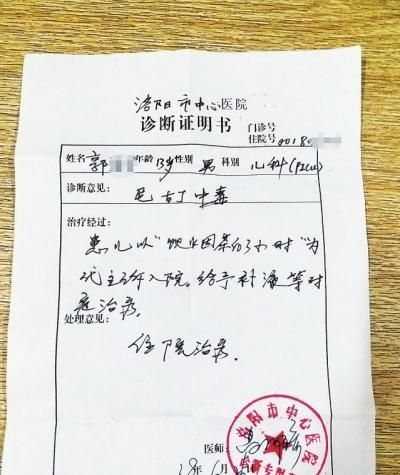 洛阳市中心医院
诊断证明书
门诊号
住院号 00180
姓名 郭 年龄 13岁 性别 男 科别 儿科(PICU)
诊断意见:
尼古丁中毒
治疗经过:
患儿以"饮 时"为
代主诉入院。给予补液等对
症治疗。
处理意见:
住院治疗。
医师:
洛阳市中心医院